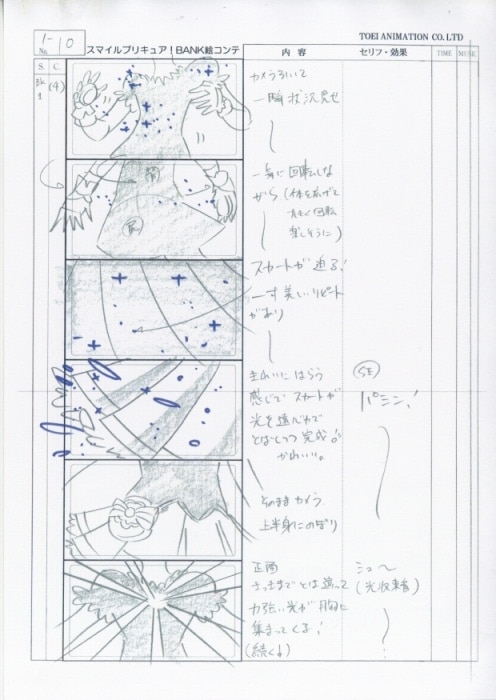 1-10
No.
スマイルプリキュア！BANK絵コンテ
TOEI ANIMATION CO. LTD
S. C. 内容 セリフ・効果 TIME
BK
1
(4)
カメラ引いて
一瞬状況見せ
一気に回転しな
がら(体を広げて
大きく回転
楽しそうに)
スカートが迫る!
一寸美しいリピート
があり
きれいにはらう
感じで スカートが
光を
とばしつつ完成!
かわいい。
(SE)
パシン!
そのままカメラ
上半身にのぼり
正面
さっきまでとは違って
力強い光が胸に
集まってくる!
(続く)
シュ〜
(光収束音)